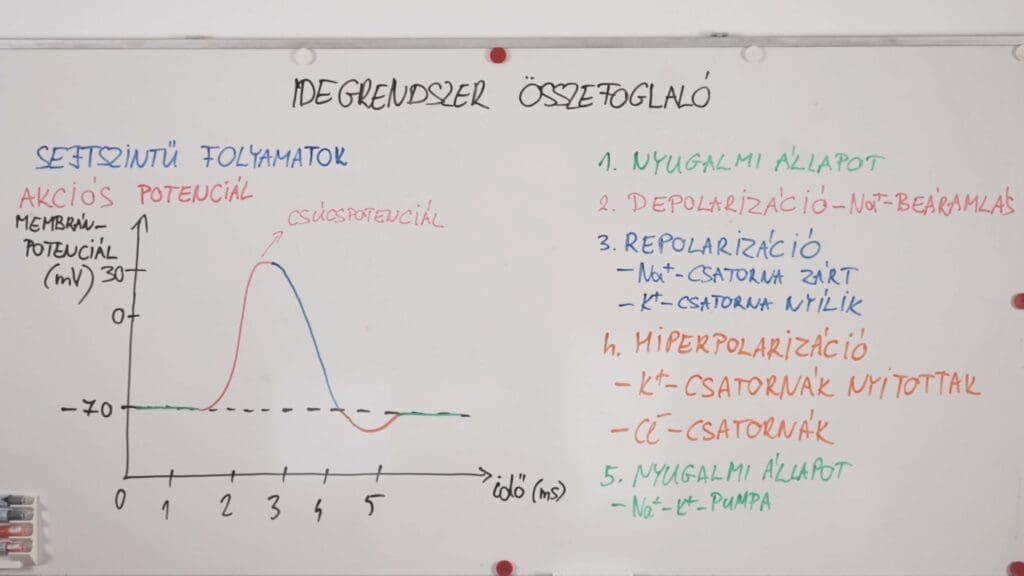 IDEGRENDSZER ÖSSZEFOGLALÓ
SEJTSZINTŰ FOLYAMATOK
AKCIÓS POTENCIÁL
MEMBRÁN-
POTENCIÁL
(mV)
30
0
-70
CSÚCSPOTENCIÁL
0 1 2 3 4 5
idő (ms)
1. NYUGALMI ÁLLAPOT
2. DEPOLARIZÁCIÓ-Na⁺-BEÁRAMLÁS
3. REPOLARIZÁCIÓ
- Na⁺-CSATORNA ZÁRT
- K⁺-CSATORNA NYÍLIK
4. HIPERPOLARIZÁCIÓ
- K⁺-CSATORNÁK NYITOTTAK
- Cl⁻-CSATORNÁK
5. NYUGALMI ÁLLAPOT
- Na⁺-K⁺-PUMPA